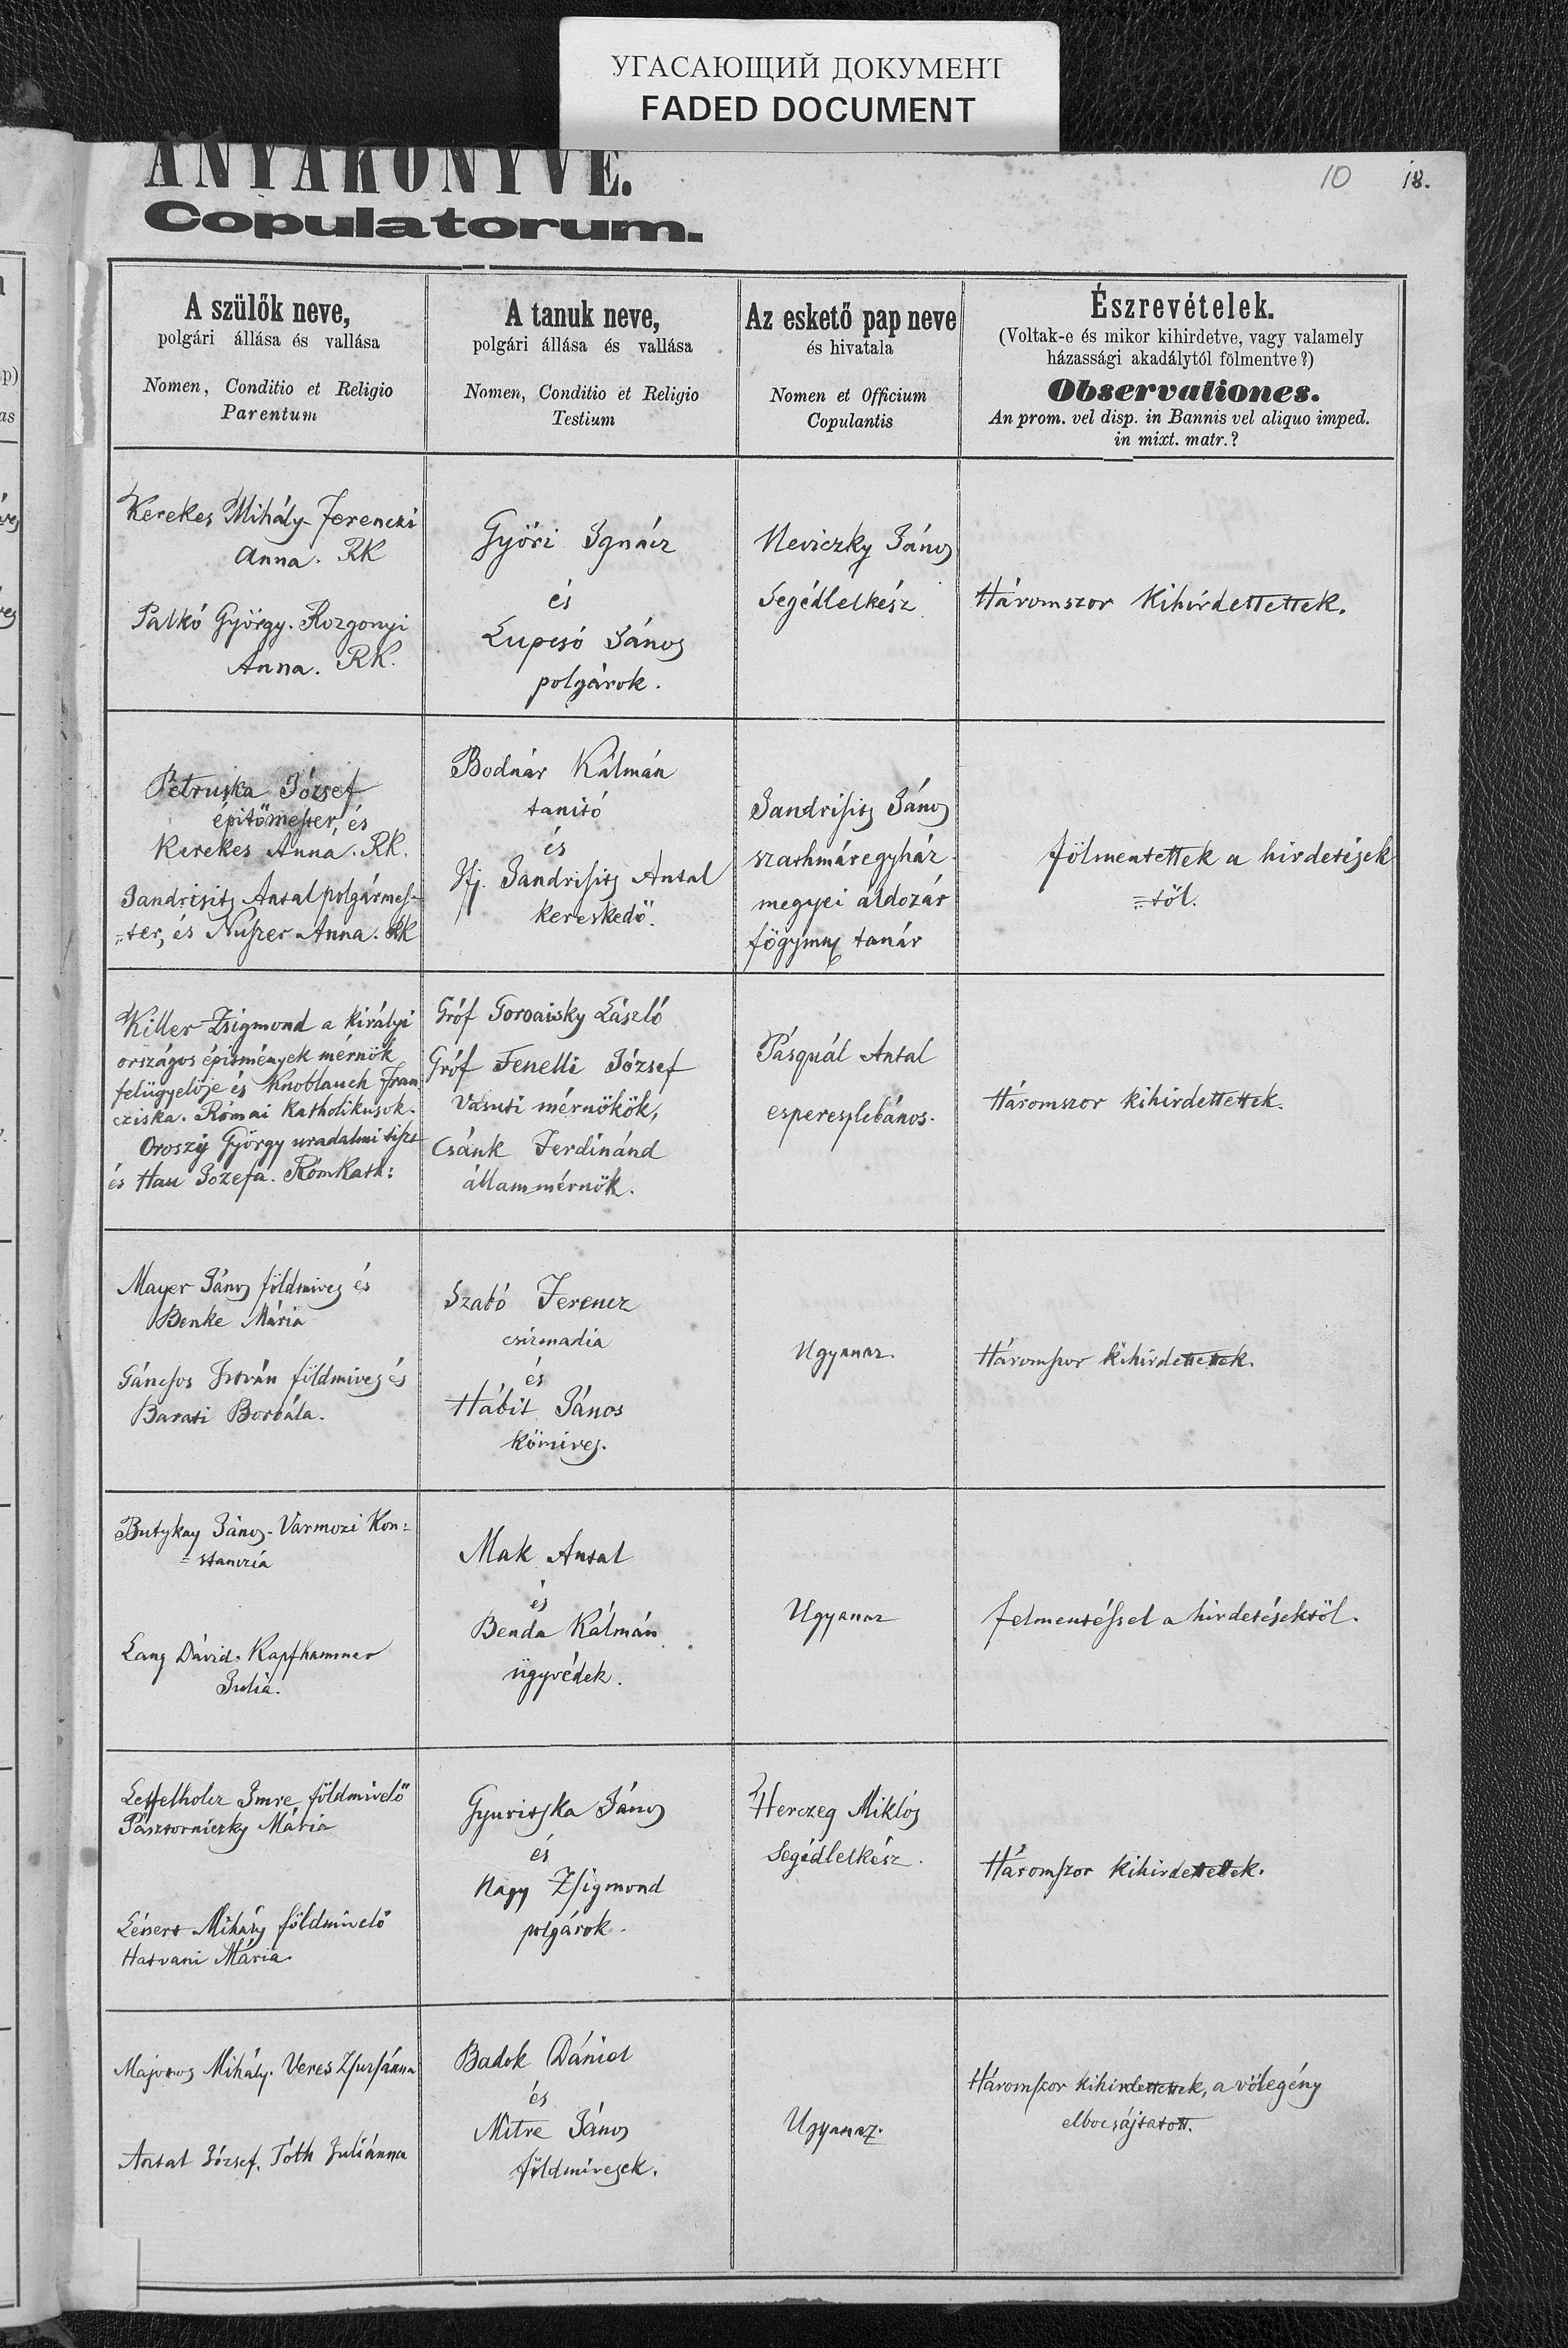 УГАСАЮЩИЙ ДОКУМЕНТ
FADED DOCUMENT
ANYAKÖNYVE.
10 18.
Copulatorum.
A szülők neve,
polgári állása és vallása
Nomen, Conditio et Religio
Parentum
A tanuk neve,
polgári állása és vallása
Nomen, Conditio et Religio
Testium
Az eskető pap neve
és hivatala
Nomen et Officium
Copulantis
Észrevételek.
(Voltak-e és mikor kihirdetve, vagy valamely
házassági akadálytól fölmentve?)
Observationes.
An prom. vel disp. in Bannis vel aliquo imped.
in mixt. matr.?
Kerekes Mihály. Ferenczi
Anna. RK
Palkó György. Rozgonyi
Anna. RK.
Györi Ignácz
és
Lupcsó János
polgárok.
Neviczky János
Segédlelkész
Háromszor kihirdettettek.
Petruska József
építömester, és
Kerekes Anna. RK.
Jandrisits Antal polgármes-
ter, és Nuszer Anna. RK
Bodnár Kálmán
tanitó
és
Ifj. Jandrisits Antal
kereskedö.
Jandrisits János
szathmáregyház
megyei áldozár
fögymn tanár
fölmentettek a hirdetések
=töl.
Killer Zsigmond a királyi
országos épitmények mérnök
felügyelöje és Knoblauch Fran
cziska. Római Katholikusok.
Oroszy György uradalmi tiszt
és Hau Jozefa. RómKath:
Gróf László
Gróf Fenelli József
Vasuti mérnökök,
Csánk Ferdinánd
állammérnök.
Pásquál Antal
esperesplebános.
Háromszor kihirdettettek.
Mayer János földmives és
Benke Mária
Gáncsos István földmives és
Barati Borbála.
Szabó Ferencz
csizmadia
és
Hábit János
kömives.
Ugyanaz.
Háromszor kihirdettettek.
Butykay János. Varmozi Kon:
=stanczia
Lang Dávid. Kapfhammer
Julia.
Mak Antal
és
Benda Kálmán
ügyvédek.
Ugyanaz
felmentéssel a hirdetésektöl.
Imre földmivelö
Mária
Mihály földmivelö
Hatvani Mária
Gyuritska János
és
Nagy Zsigmond
polgárok.
Herczeg Miklós
Segédlelkész.
Háromszor kihirdettettek.
Majoros Mihály. Veres Zsuzsánna
Antal József. Tóth Juliánna
Badok Dániel
és
Mitre János
földmivesek.
Ugyanaz.
Háromszor kihirdettettek, a völegény
elbocsájtatott.